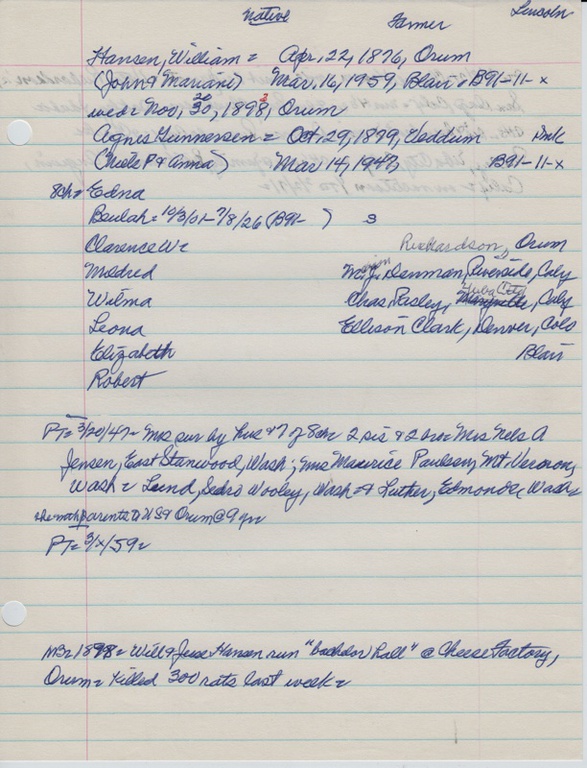 Native Farmer Lincoln
Hansen, William = Apr, 22, 1876, Orum
(John & Mariane) Mar, 16, 1959, Blair = B91-11-x
wed = Nov, 30, 1898, Orum
20 2
Agnes Gunnersen = Oct, 29, 1879, Dnk
P & Anna) Mar 14, 1947 B91-11-x
8ch = Edna
Beulah = 10/3/01-7/8/26 (B91- ) 3
Clarence W = Richardson, Orum
Mildred M. J. Denman, Riverside, Caly
Wilma Chas Pasley, Yuba City, Caly
Leona Ellison Clark, Denver, Colo
Elizabeth Blair
Robert
PT = 3/20/47 = Mrs sur by hus & 7 of 8ch = 2 sis & 2 bro = Mrs Nels A
Jensen, East Stanwood, Wash; Mrs Maurice Paulson, Mt. Vernon,
Wash = Lund, Sedro Wooley, Wash = & Luther, Edmonds, Wash =
she with parents to US & Orum @ 9 yr
PT = 3/x/59 =
1898 = Will & Jess Hansen run "bachelor hall" @ Cheese Factory,
Orum = Killed 300 rats last week =